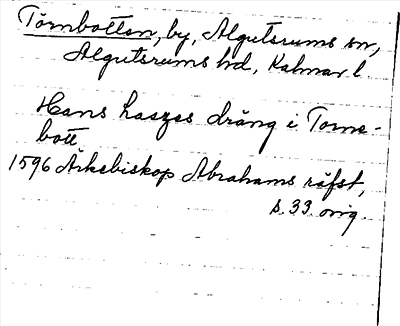 Törnbotten, by, Algutsrums sn,
Algutsrums hd, Kalmar l.
Hans Lasses dräng i Torne-
bott
1596 Ärkebiskop Abrahams räfst,
s. 33. orig.